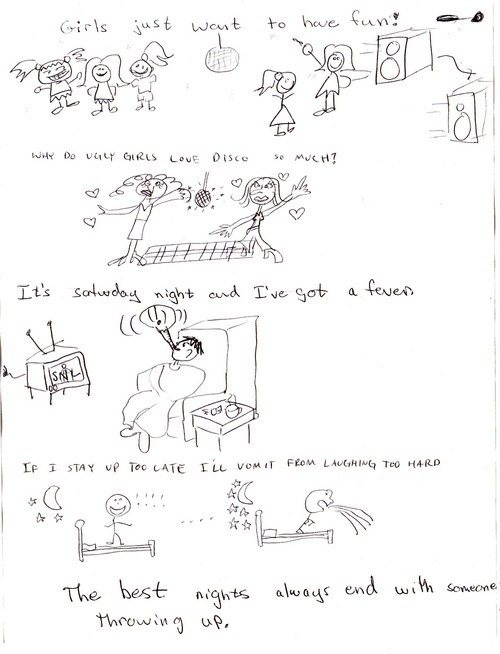 Girls just want to have fun!
WHY DO UGLY GIRLS LOVE DISCO SO MUCH?
It's saturday night and I've got a fever.
SNL
IF I STAY UP TOO LATE I'LL VOMIT FROM LAUGHING TOO HARD
!!!!
....
The best nights always end with someone
throwing up.